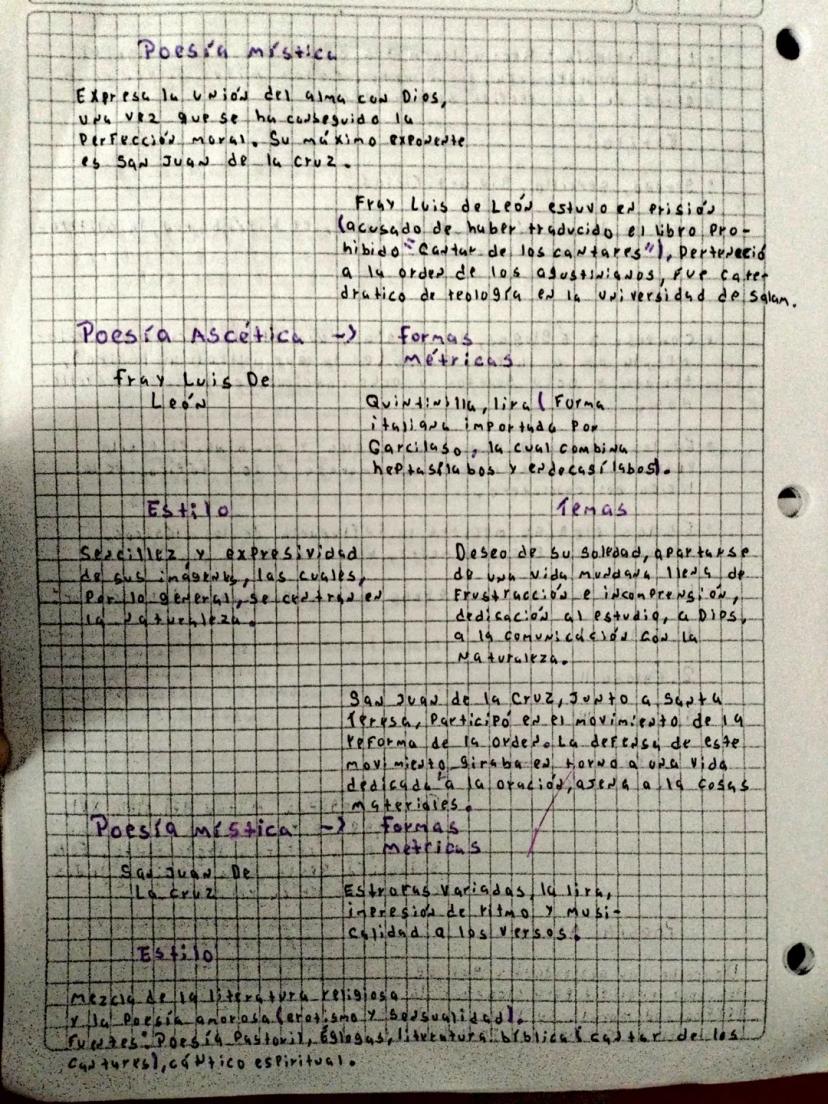 Poesía mística
Expresa la unión del alma con Dios,
una vez que se ha conseguido la
perfección moral. Su máximo exponente
es San Juan de la Cruz.
Fray Luis de León estuvo en prisión
(acusado de haber traducido el libro pro-
hibido "Cantar de los cantares"), Perteneció
a la orden de los agustinianos, fue cate-
dratico de teología en la universidad de Salam.
Poesía Ascética -> formas
métricas
Fray Luis De
León
Quintinilla, lira (Forma
italiana importada por
Garcilaso, la cual combina
heptasílabos y endecasílabos).
Estilo
Temas
Sencillez y expresividad
de sus imágenes, las cuales,
por lo general, se centran en
la naturaleza.
Deseo de su soledad, apartarse
de una vida mundana llena de
frustracción e incomprensión,
dedicación al estudio, a Dios,
a la comunicación con la
Naturaleza.
San Juan de la Cruz, Junto a Santa
Teresa, Participó en el movimiento de la
reforma de la orden. La defensa de este
movimiento giraba en torno a una vida
dedicada a la oración, ajena a la cosas
materiales.
Poesía mística -> formas
métricas
San Juan De
La Cruz
Estrofas variadas, la lira,
impresión de ritmo y musi-
calidad a los versos.
Estilo
Mezcla de la literatura religiosa
y la Poesía amorosa (erotismo y sensualidad).
Fuentes: Poesía Pastoril, Églogas, literatura bíblica (cantar de los
Cantares), cántico espiritual.